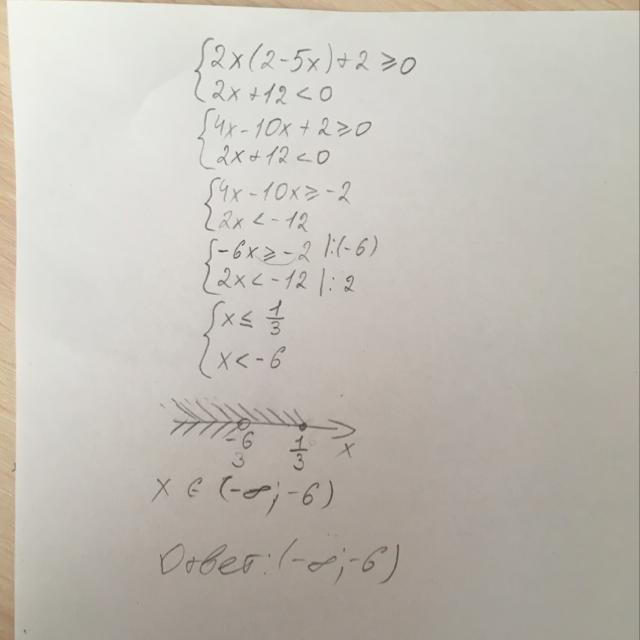 {2x(2-5x)+2≥0
{2x+12<0
{4x-10x+2≥0
{2x+12<0
{4x-10x≥-2
{2x<-12
{-6x≥-2 |:(-6)
{2x<-12 |:2
{x≤1/3
{x<-6
-6/3 1/3 x
x∈(-∞;-6)
Ответ:(-∞;-6)